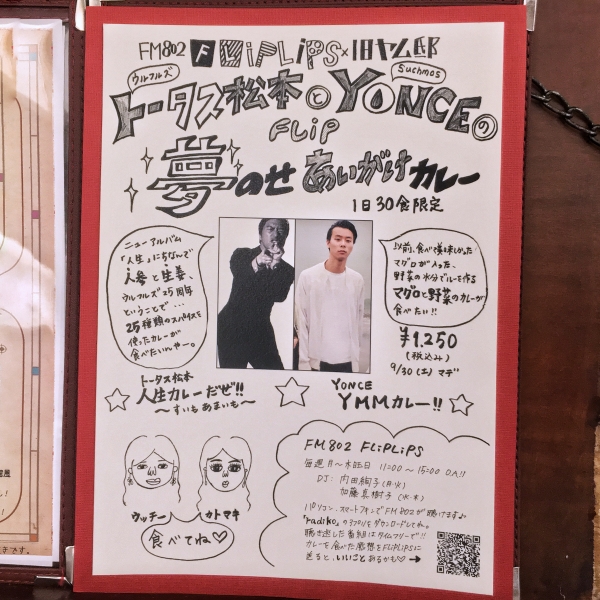 FM802 F FLiPLiPS×旧ヤム邸
ウルフルズ
Suchmos
トータス松本とYONCEの
FLiP
夢のせあいがけカレー
1日30食限定
ニューアルバム
「人生」にちなんで
人参と生姜、
ウルフルズ25周年
ということで…
25種類のスパイスを
使ったカレーが
食べたいんやー。
以前、食べて美味しかった
マグロが入った、
野菜の水分でルーを作る
マグロと野菜のカレーが
食べたい!!
¥1,250
(税込み)
9/30(土)マデ
トータス松本
人生カレーだぜ!!
〜すいもあまいも〜
YONCE
YMMカレー!!
ウッチー
カトマキ
食べてね♡
FM802 FLiPLiPS
毎週月〜木曜日 11:00〜15:00 O.A!!
DJ: 内田絢子(月・火)
加藤真樹子(水・木)
パソコン、スマートフォンでFM802が聴けます♪
"radiko"のアプリをダウンロードしてね。
聴き逃した番組はタイムフリーで!!
カレーを食べた感想をFLiPLiPSに
送ると、いいことあるかも♡→
です。